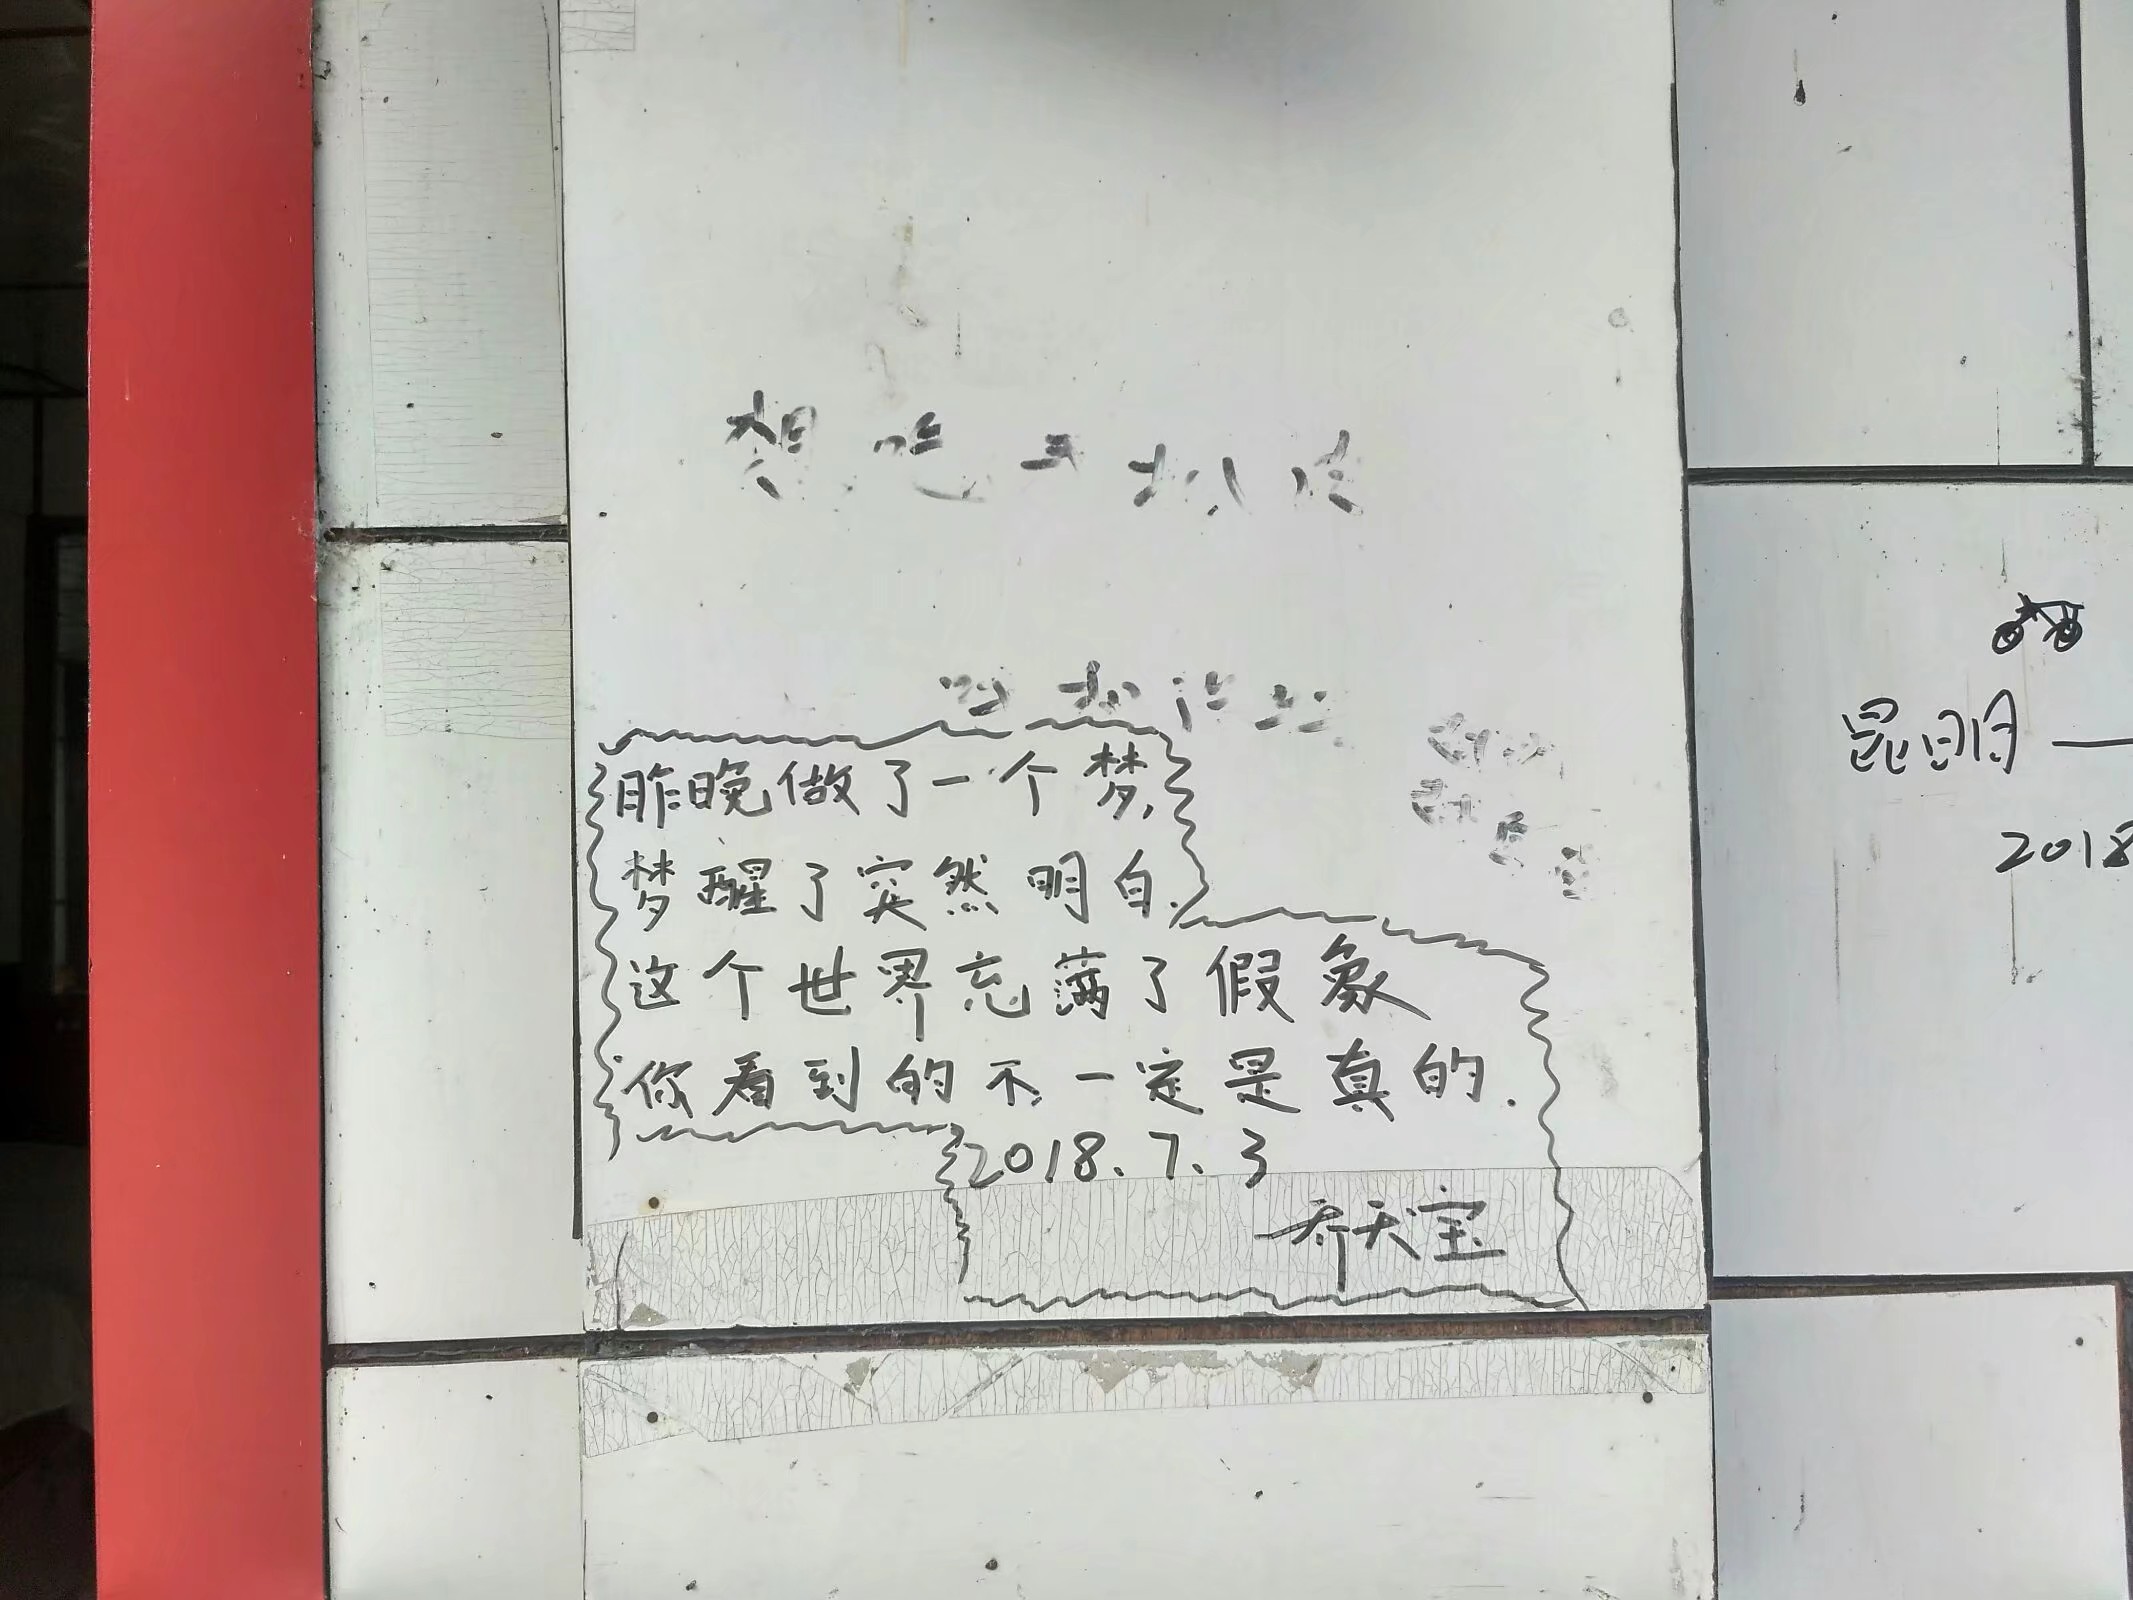 昨晚做了一个梦,
梦醒了突然明白.
这个世界充满了假象
你看到的不一定是真的.
2018.7.3
乔天宝
昆明 —
2018